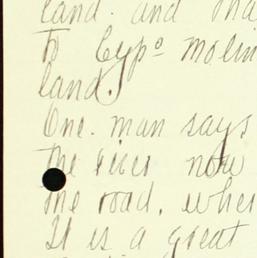 land. and tha
to Cypº molin
land.
One. man says
the river now
the road, wher
It is a great